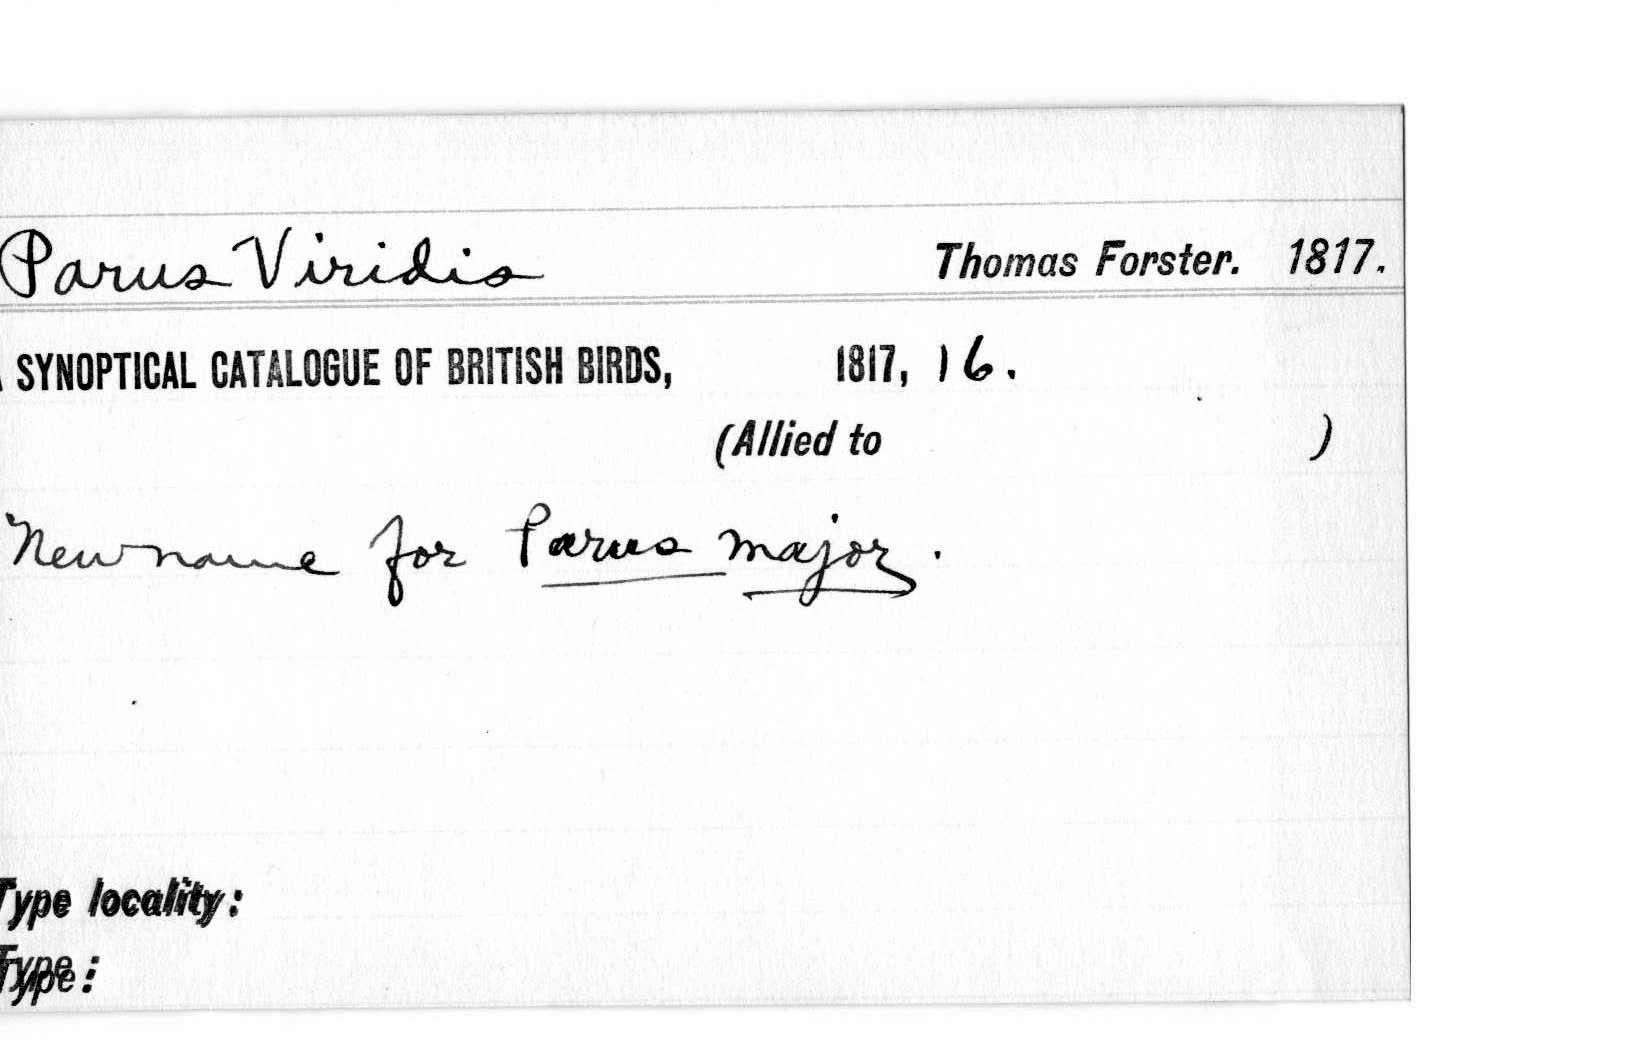 Parus Viridis Thomas Forster. 1817.
SYNOPTICAL CATALOGUE OF BRITISH BIRDS, 1817, 16.
(Allied to )
New name for Parus major.
Type locality:
Type: